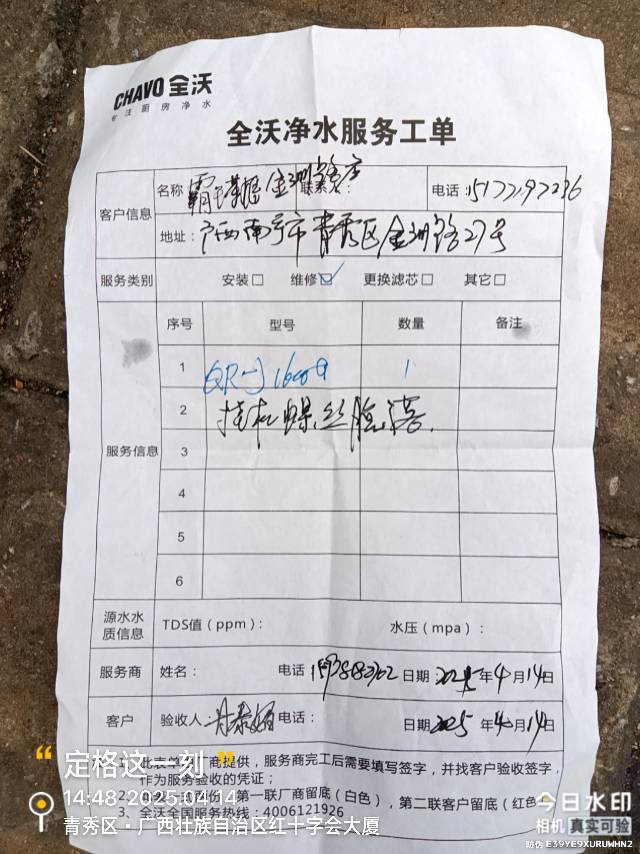 CHAVO 全沃
专注厨房净水
全沃净水服务工单
客户信息
名称 金洲路店 联系人： 电话：
地址： 广西南宁市青秀区金洲路27号
服务类别 安装□ 维修☑ 更换滤芯□ 其它□
服务信息
序号 型号 数量 备注
1 QR-J1600G 1
2 挂机螺丝脱落.
3
4
5
6
源水水质信息 TDS值（ppm）： 水压（mpa）：
服务商 姓名： 电话 日期：2025年4月14日
客户 验收人 电话： 日期2025年4月14日
商提供，服务商完工后需要填写签字，并找客户验收签字，
作为服务验收的凭证；
第一联厂商留底（白色），第二联客户留底（红色
3、全沃全国服务热线：4006121926
“ 定格这一刻 ”
14:48 2025.04.14
青秀区·广西壮族自治区红十字会大厦
今日水印
相机 真实可验
防伪 E39YE9XURUWHN2